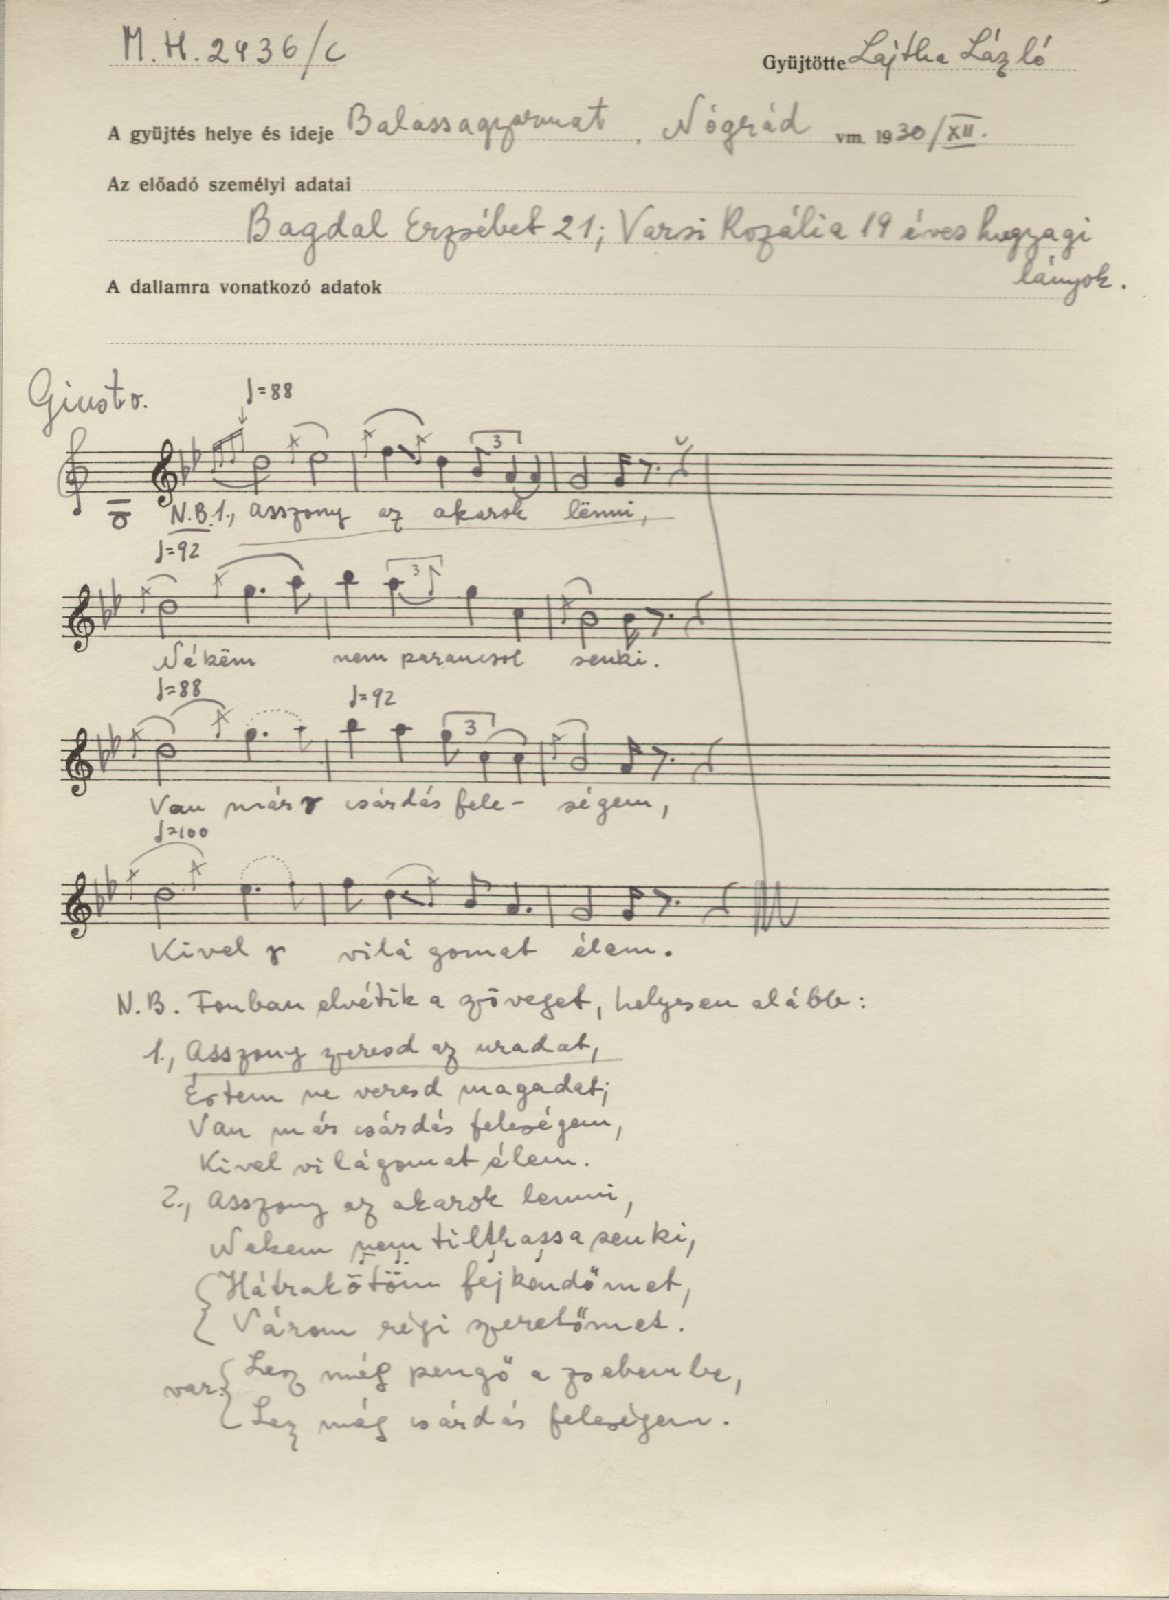 M.H. 2436/c
Gyüjtötte Lajtha László
A gyüjtés helye és ideje Balassagyarmat, Nógrád vm. 1930/XII.
Az előadó személyi adatai
Bagdal Erzsébet 21; Varsi Rozália 19 éves hugyagi
lányok.
A dallamra vonatkozó adatok
Giusto. ♩=88
3
N.B. 1., Asszony az akarok lënni,
♩=92
3
Nékëm nem parancsol senki.
♩=88 ♩=92
3
Van már csárdás fele- ségem,
♩=100
Kivel vilá gomat élem.
N.B. Fonban elvétik a szöveget, helyesen alább:
1., Asszony szeresd az uradat,
Értem ne veresd magadat;
Van már csárdás feleségem,
Kivel világomat élem.
2., Asszony az akarok lenni,
Nekem nem tilthassa senki,
Hátrakötöm fejkendőmet,
Várom régi szeretőmet.
var. Lesz még pengő a zsebembe,
Lesz még csárdás feleségem.